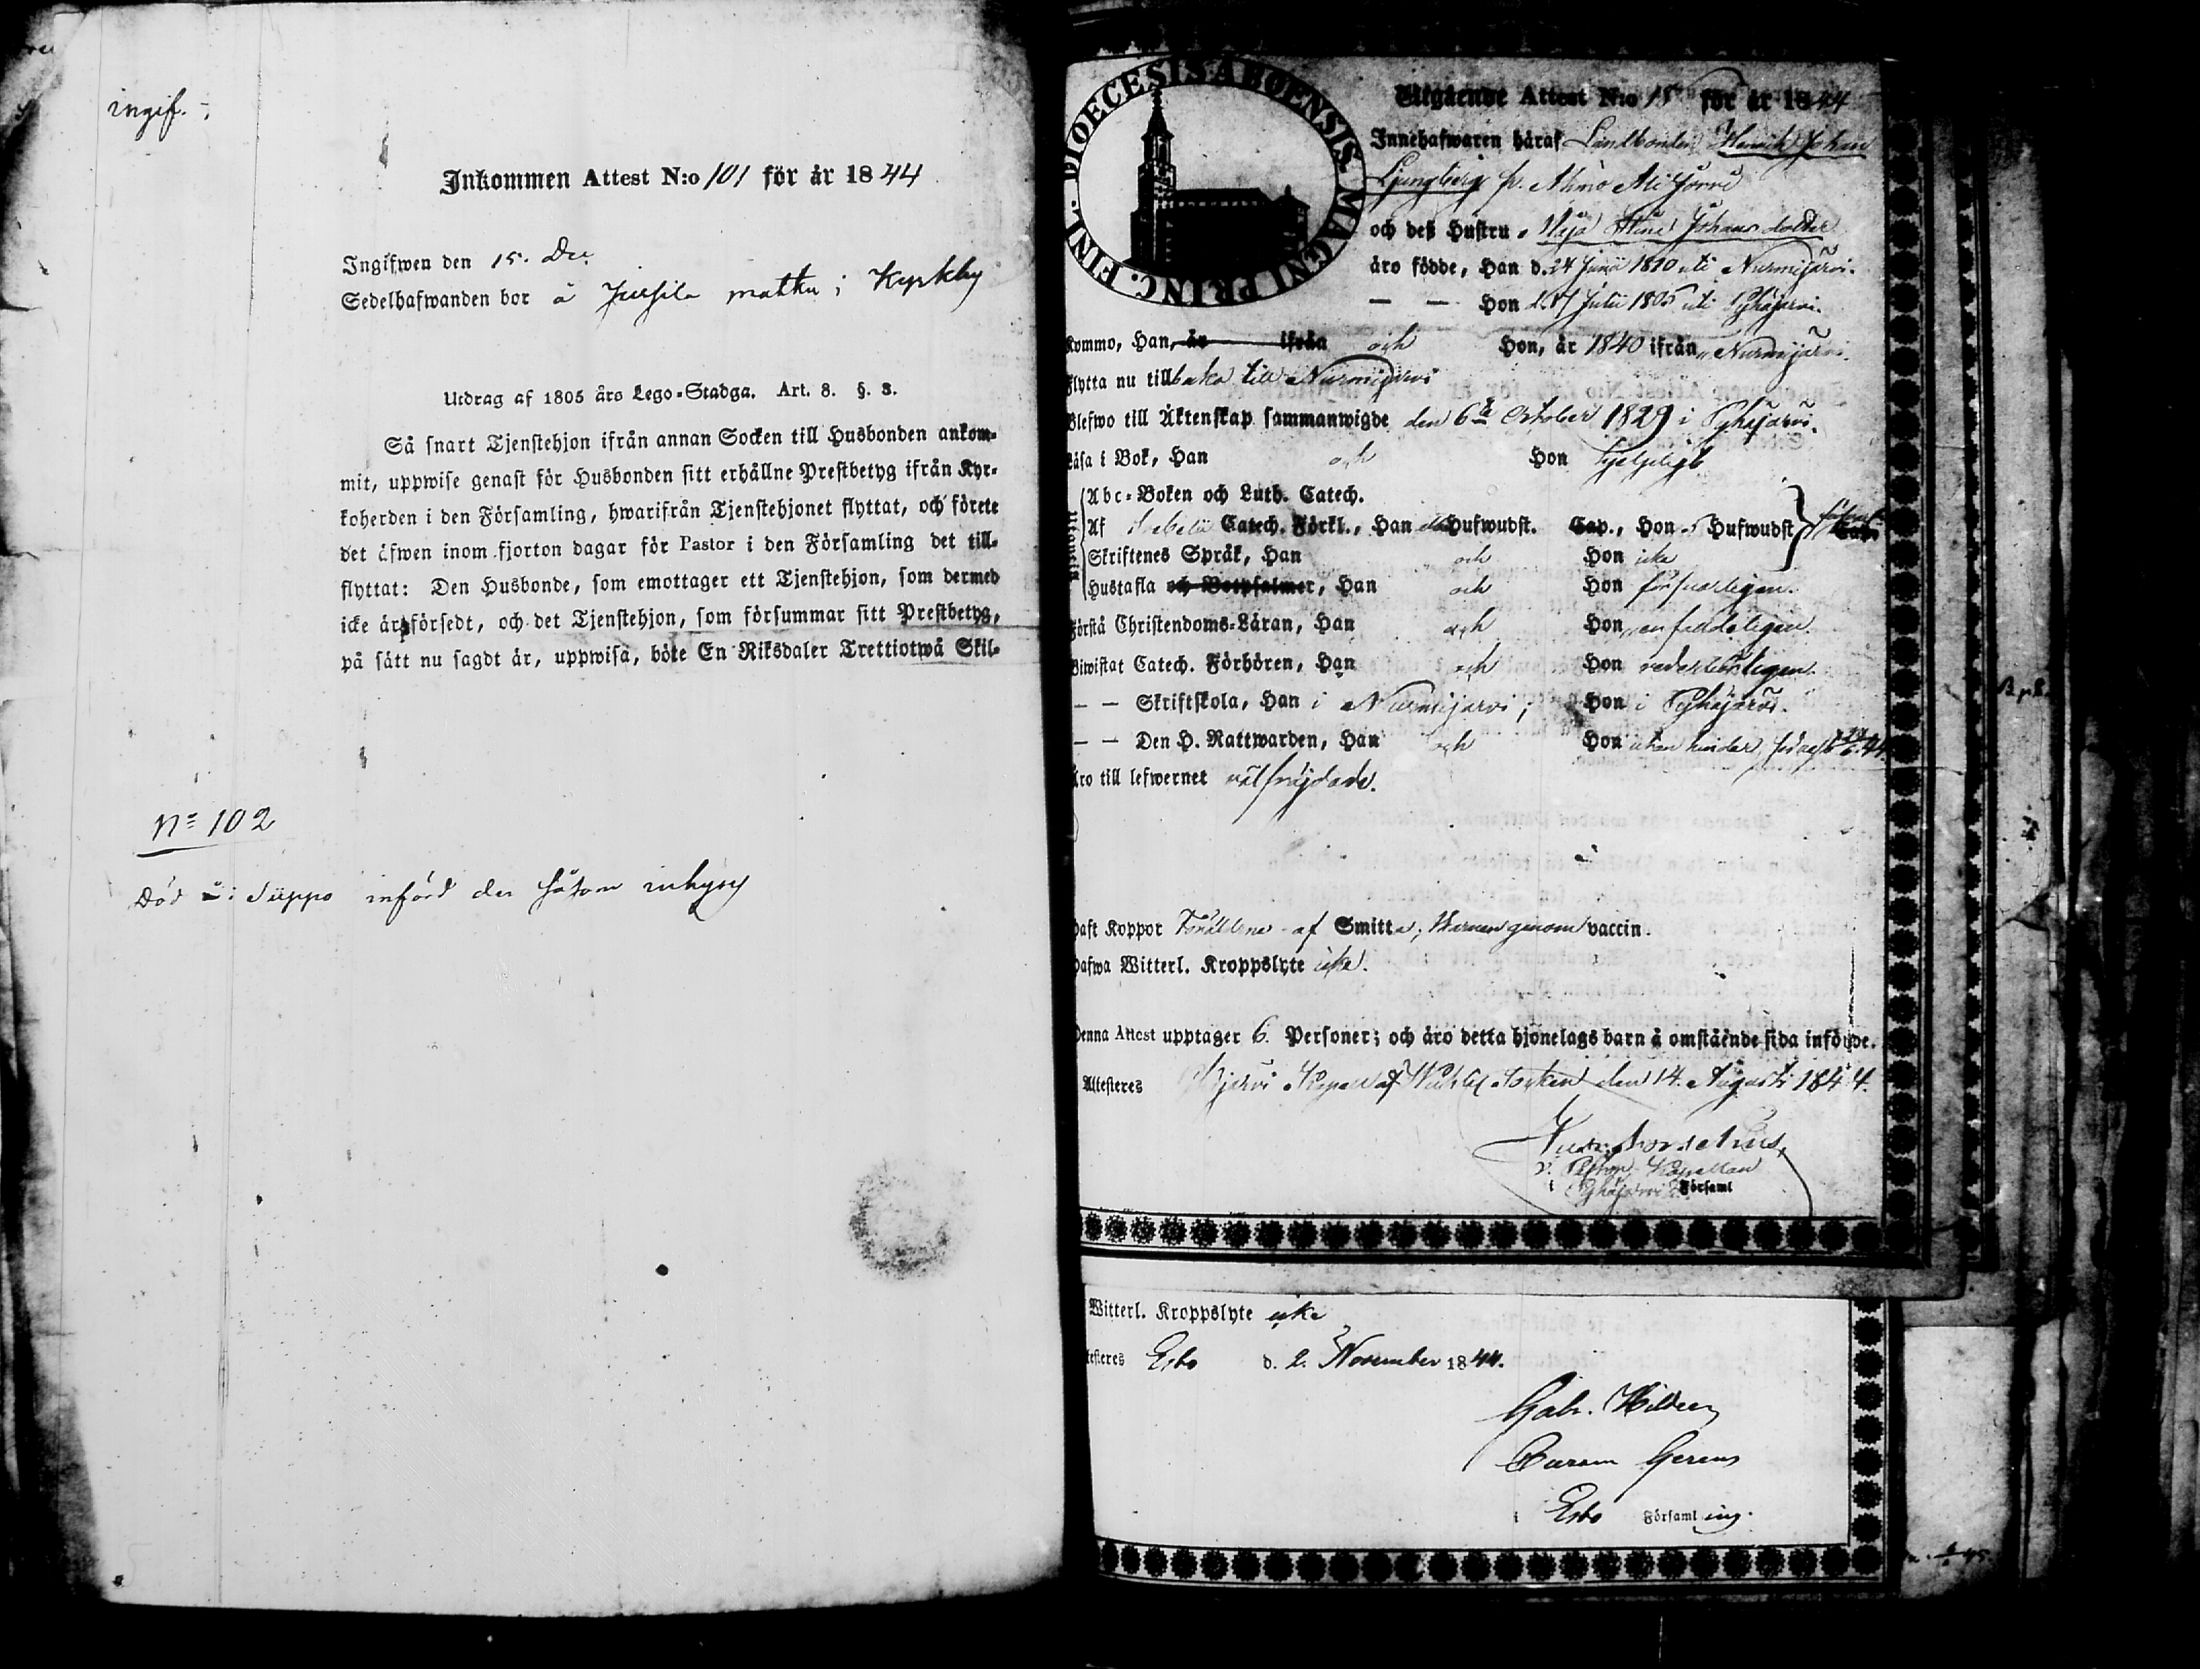 ingif.
Inkommen Attest N:o 101 för år 1844
Ingifwen den 15. Dec
Sedelhafwanden bor å Jussila mattu i Kyrkby
Utdrag af 1805 års Lego-Stadga. Art. 8. §. 3.
Så snart Tjenstehjon ifrån annan Socken till Husbonden ankom-
mit, uppwise genast för Husbonden sitt erhållne Prestbetyg ifrån Kyr-
koherden i den Församling, hwarifrån Tjenstehjonet flyttat, och förete
det äfwen inom fjorton dagar för Pastor i den Församling det till-
flyttat: Den Husbonde, som emottager ett Tjenstehjon, som dermed
icke är försedt, och det Tjenstehjon, som försummar sitt Prestbetyg,
på sätt nu sagdt är, uppwisa, böte En Riksdaler Trettiotwå Skil-
No 102
Död i Siippo införd der såsom inhyses
FINL. DIOECESIS ABOENSIS MAGNI PRINC.
Utgående Attest N:o 15 för år 1844
Innehafwaren häraf Landbonden Henrik Johan
Ljungberg fr. Ahmo
och deß Hustru Maja Stina Johansdotter
äro födde, Han d. 24 Junii 1810 uti Nurmijärvi.
— — Hon d. Julii 1805 uti Pyhäjärvi.
Kommo, Han, år ifrån och Hon, år 1840 ifrån Nurmijärvi.
Flytta nu tillbaka till Nurmijärvi
Blefwo till Äktenskap sammanwigde den 6te October 1829 i Pyhäjärvi.
Läsa i Bok, Han och Hon hjelpligt
Abc-Boken och Luth. Catech.
Af Catech. Förkl., Han Hufwudst. Cap., Hon 5 Hufwudst Cap.
Skriftenes Språk, Han och Hon icke
Hustafla och Botpsalmer, Han och Hon försvarligen.
Förstå Christendoms-Läran, Han och Hon enfaldeligen.
Biwistat Catech. Förhören, Han och Hon
— — Skriftskola, Han i Nurmijärvi; Hon i Pyhäjärvi.
— — Den H. Nattwarden, Han och Hon utan hinder
Äro till lefwernet välfrägdade.
Haft Koppor Föräldrarne af Smitta; Barnen genom vaccin.
Hafwa Witterl. Kroppslyte icke.
Denna Attest upptager 6. Personer; och äro detta hjonelags barn å omstående sida införde.
Attesteres Pyhäjärvi Kapell af Wichtis Socken den 14. Augusti 1844.
V. Pastor Kapellan
i Pyhäjärvi Församl
Witterl. Kroppslyte icke
testeres Esbo d. 2. November 1844.
Gabr. Hilden
Curam Gerens
i Esbo Församling.